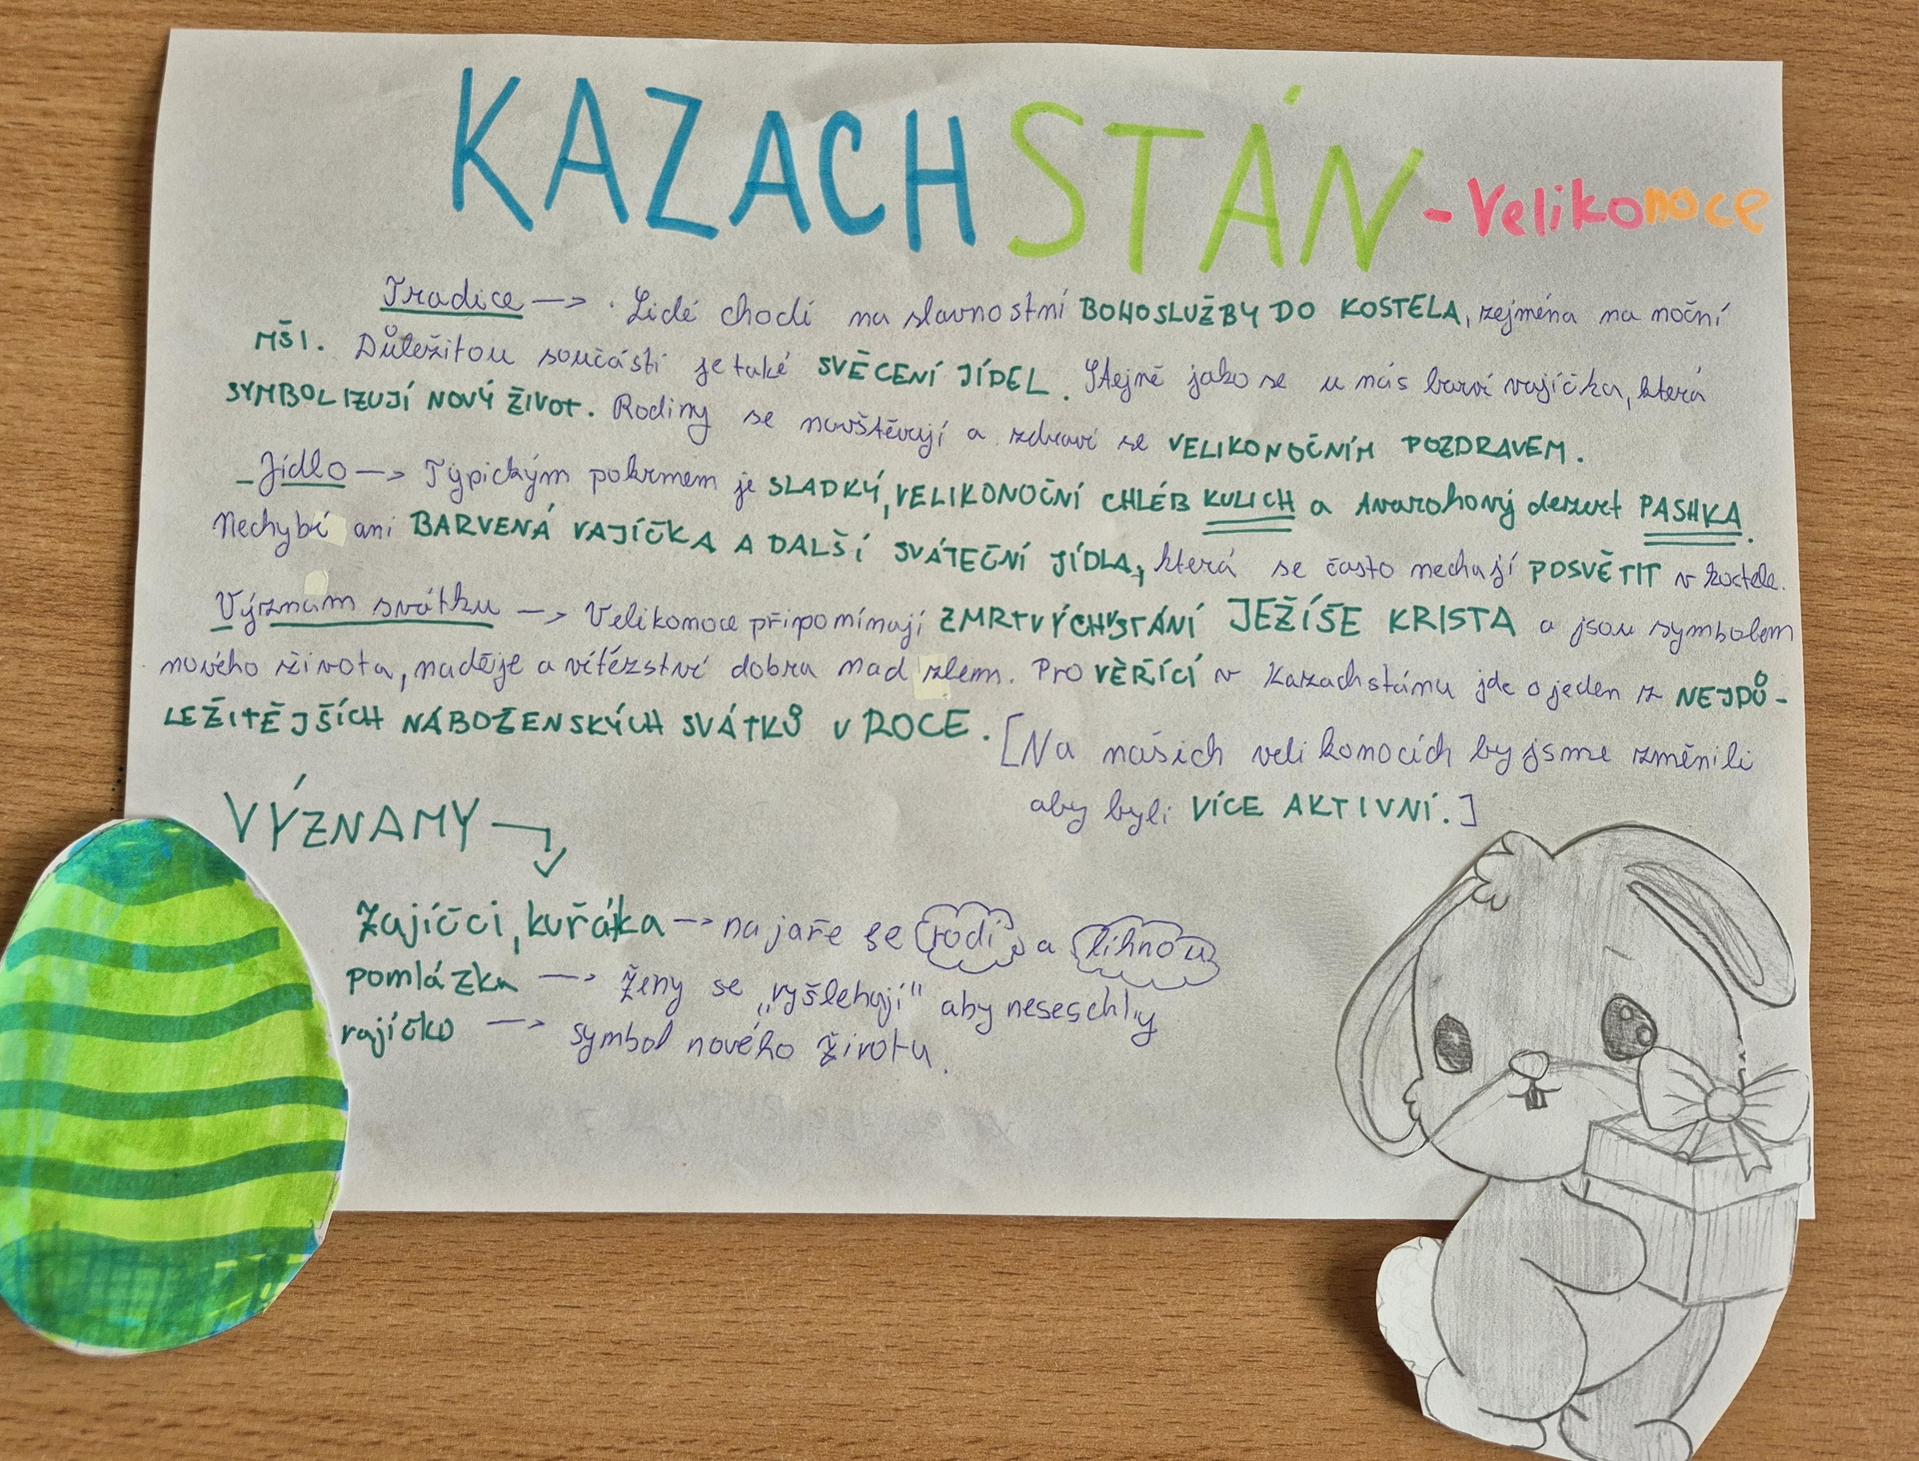 KAZACHSTÁN - Velikonoce
Tradice → · Lidé chodí na slavnostní BOHOSLUŽBY DO KOSTELA, zejména na noční
MŠI. Důležitou součástí je také SVĚCENÍ JÍDEL. Stejně jako se u nás barví vajíčka, která
SYMBOLIZUJÍ NOVÝ ŽIVOT. Rodiny se navštěvují a zdraví se VELIKONOČNÍM POZDRAVEM.
- Jídlo → Typickým pokrmem je SLADKÝ, VELIKONOČNÍ CHLÉB KULICH a tvarohový dezert PASHKA.
Nechybí ani BARVENÁ VAJÍČKA A DALŠÍ SVÁTEČNÍ JÍDLA, která se často nechají POSVĚTIT v kostele.
Význam svátku → Velikonoce připomínají ZMRTVÝCHVSTÁNÍ JEŽÍŠE KRISTA a jsou symbolem
nového života, naděje a vítězství dobra nad zlem. Pro VĚŘÍCÍ v Kazachstánu jde o jeden z NEJDŮ-
LEŽITĚJŠÍCH NÁBOŽENSKÝCH SVÁTKŮ V ROCE. [Na našich velikonocích by jsme změnili
aby byli VÍCE AKTIVNÍ.]
VÝZNAMY
Zajíčci, kuřátka → na jaře se rodí a líhnou
pomlázka → ženy se „vyšlehají" aby neseschly
vajíčko → symbol nového života.